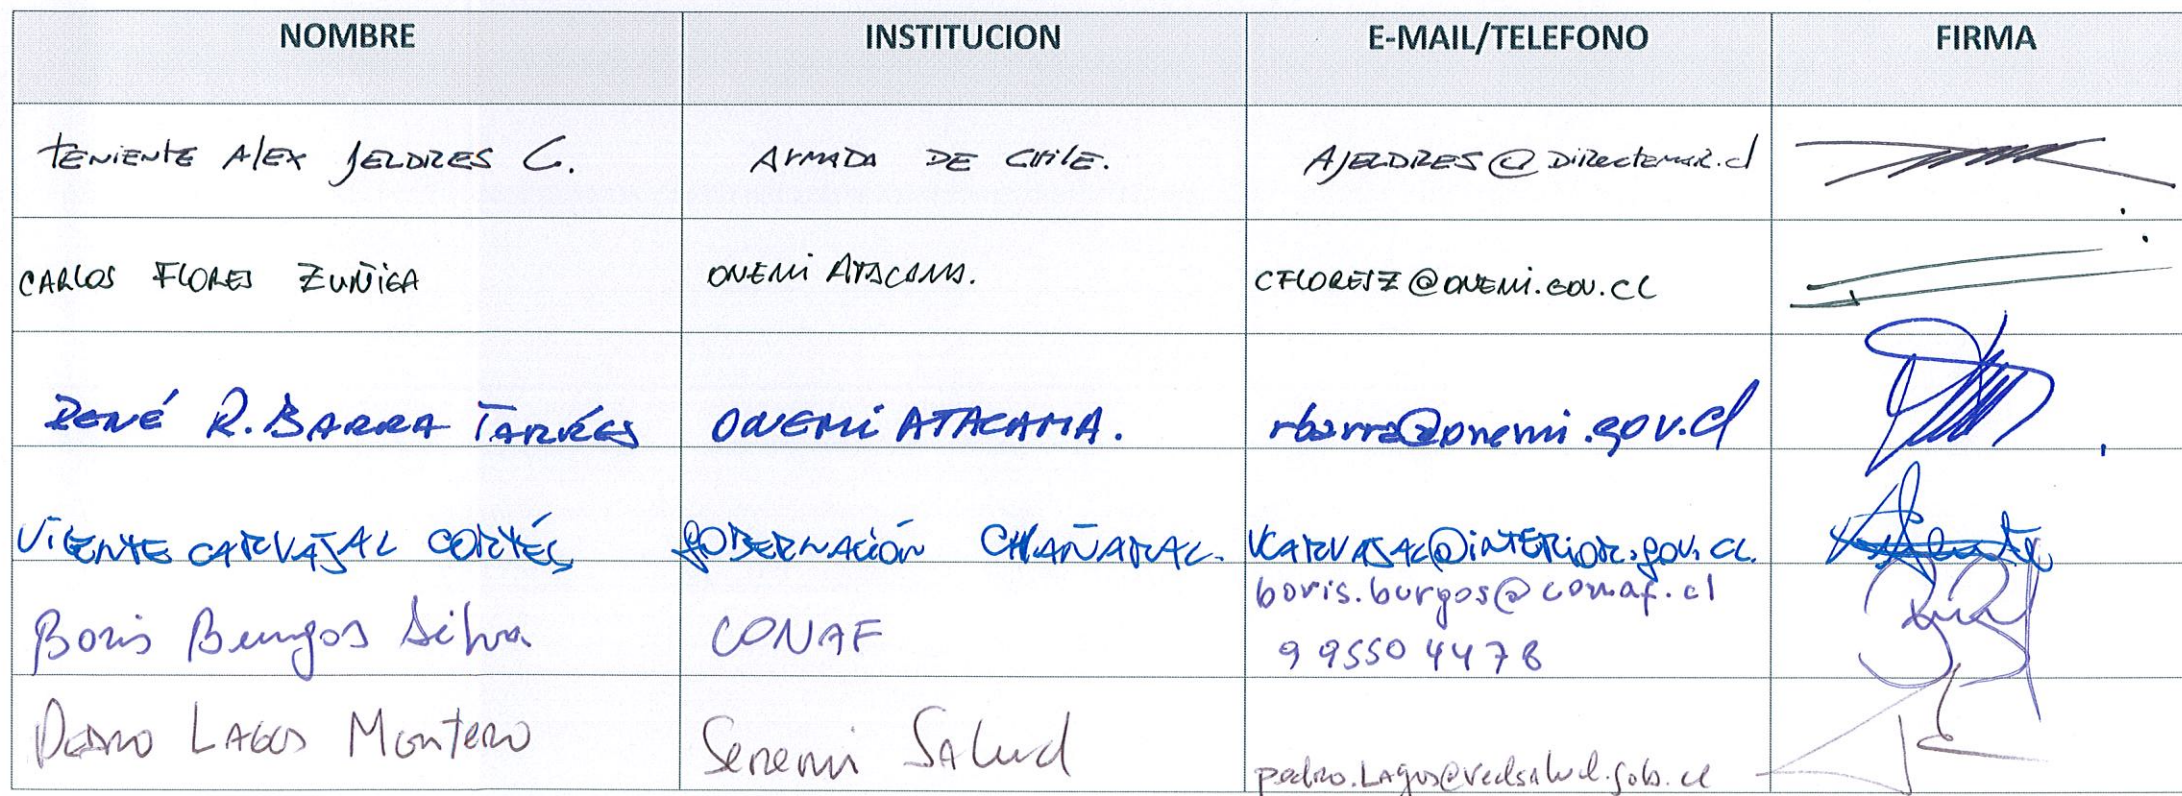 NOMBRE INSTITUCION E-MAIL/TELEFONO FIRMA
TENIENTE Alex JELDRES C. ARMADA DE CHILE. AJELDRES@DIRECTEMAR.cl
CARLOS FLORES ZUÑIGA ONEMI ATACAMA. CFLORESZ@ONEMI.GOV.CL
RENÉ R. BARRA ONEMI ATACAMA. rbarra@onemi.gov.cl
VICENTE CARVAJAL CORTÉS GOBERNACIÓN CHAÑARAL. VCARVAJAL@INTERIOR.gov.CL.
Boris Burgos Silva CONAF boris.burgos@conaf.cl
9 9550 4478
Pedro LAGOS Montero Seremi Salud pedro.Lagos@redsalud.gob.cl